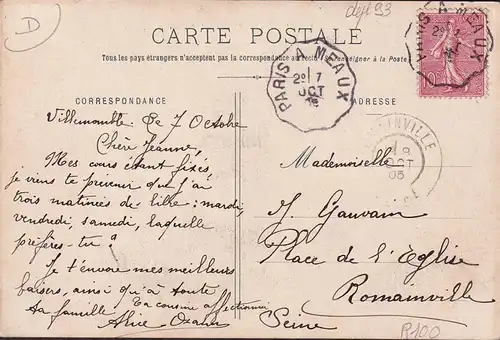 D
dept 93
CARTE POSTALE
Tous les pays étrangers n'acceptent pas la correspondance au recto (se renseigner à la Poste)
PARIS A MEAUX
2º 7
OCT
PARIS A MEAUX
CORRESPONDANCE
ADRESSE
Villemomble le 7 Octobre
Chère Jeanne,
Mes cours étant fixés,
je viens te prévenir que j'ai
trois matinées de libre : mardi,
vendredi, samedi, laquelle
préfères-tu ?
Je t'envoie mes meilleurs
baisers, ainsi qu'à toute
ta famille. Ta cousine affectionnée
Alice
ROMAINVILLE
8
OCT
05
Mademoiselle
J. Gauvain
Place de l'Eglise
Romainville
Seine
R100